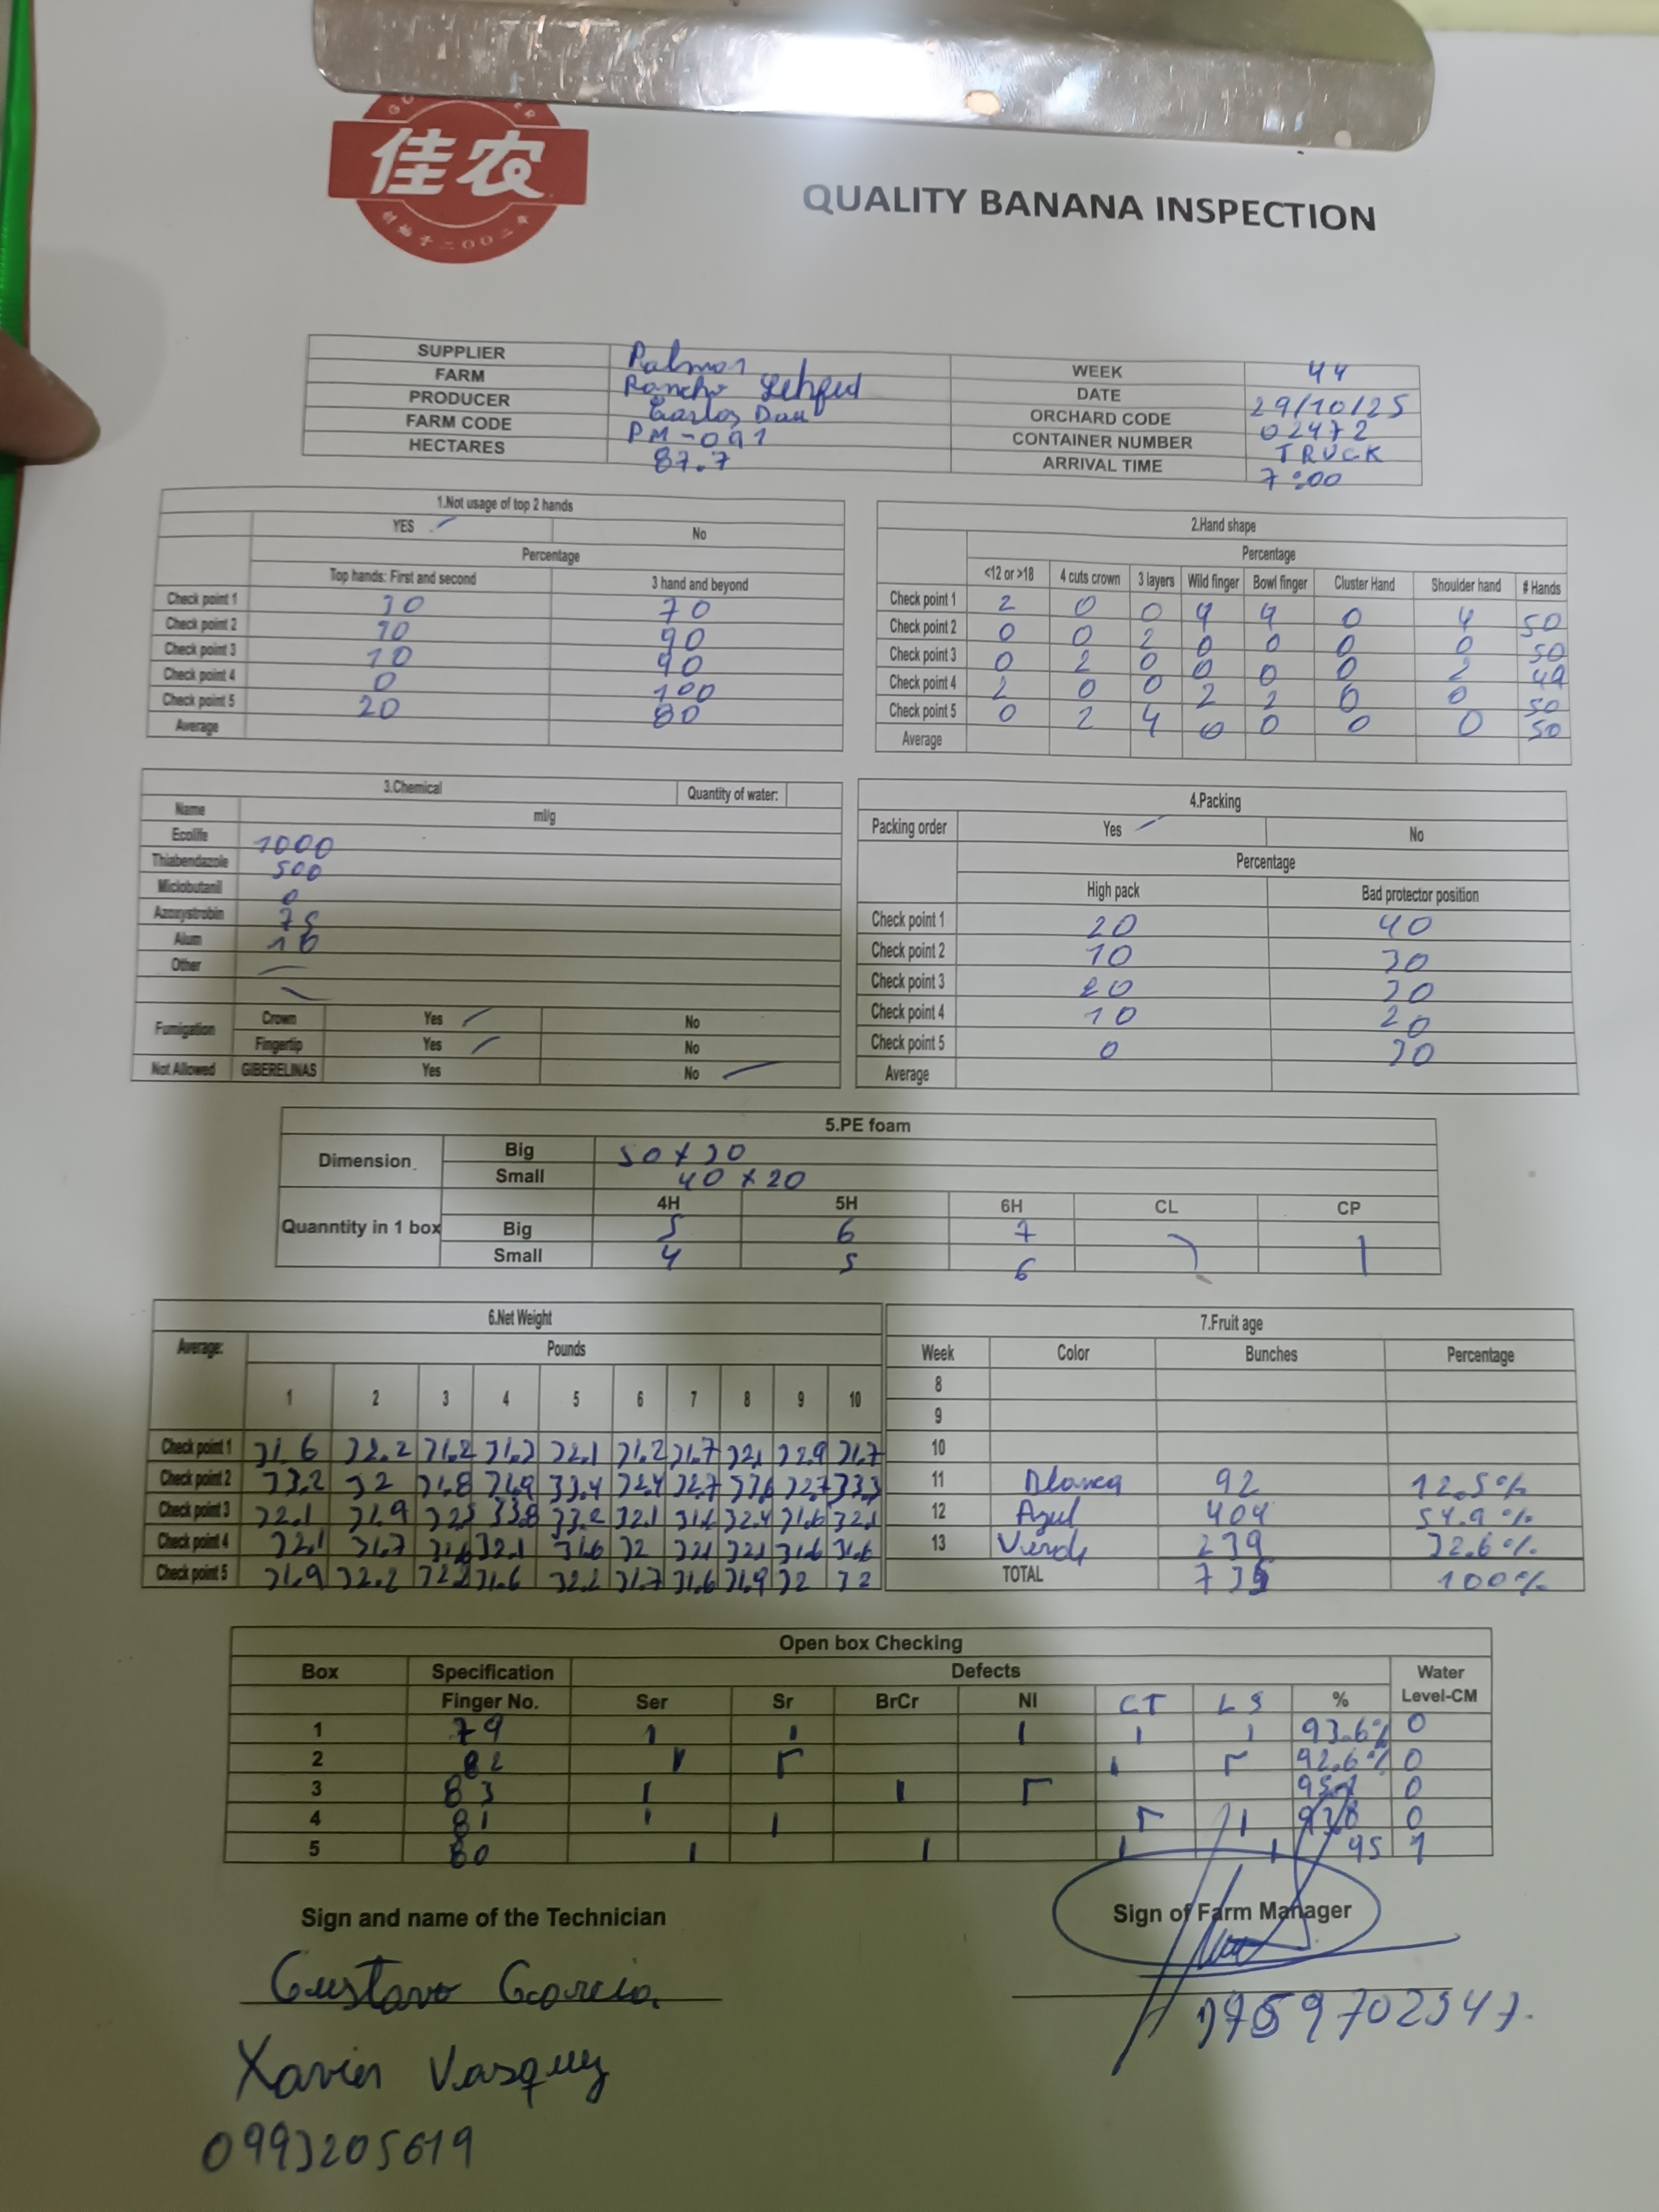 佳农
QUALITY BANANA INSPECTION
SUPPLIER Palmar WEEK 44
FARM Rancho DATE 29/10/25
PRODUCER Carlos Dau ORCHARD CODE 02472
FARM CODE PM-091 CONTAINER NUMBER TRUCK
HECTARES 87.7 ARRIVAL TIME 7:00
1.Not usage of top 2 hands
YES No
Percentage
Top hands: First and second 3 hand and beyond
Check point 1 30 70
Check point 2 10 90
Check point 3 10 90
Check point 4 0 100
Check point 5 20 80
Average
2.Hand shape
Percentage
<12 or >18 4 cuts crown 3 layers Wild finger Bowl finger Cluster Hand Shoulder hand # Hands
Check point 1 2 0 0 4 4 0 4 50
Check point 2 0 0 2 0 0 0 0 50
Check point 3 0 2 0 0 0 0 2 49
Check point 4 2 0 0 2 2 0 0 50
Check point 5 0 2 4 0 0 0 0 50
Average
3.Chemical Quantity of water:
Name ml/g
Ecolife 1000
Thiabendazole 500
Miclobutanil 0
Azoxystrobin 75
Alum 10
Other
Fumigation Crown Yes No
Fingertip Yes No
Not Allowed GIBERELINAS Yes No
4.Packing
Packing order Yes No
Percentage
High pack Bad protector position
Check point 1 20 40
Check point 2 10 30
Check point 3 20 30
Check point 4 10 20
Check point 5 0 30
Average
5.PE foam
Dimension Big 50 x 30
Small 40 x 20
4H 5H 6H CL CP
Quanntity in 1 box Big 5 6 7
Small 4 5 6
6.Net Weight
Average: Pounds
1 2 3 4 5 6 7 8 9 10
Check point 1 31.6 32.2 31.2 31.3 32.1 31.2 31.7 32.1 32.9 31.7
Check point 2 33.2 32 31.8 31.9 33.4 32.4 32.7 33.6 32.7 33.3
Check point 3 32.1 31.9 32.5 33.8 33.2 32.1 32.4 31.6 32.1
Check point 4 32.1 31.7 31.6 32.1 31.6 32 32.1 32.1 31.6 31.6
Check point 5 31.9 32.2 32.2 31.6 32.2 31.7 31.6 31.9 32 32
7.Fruit age
Week Color Bunches Percentage
8
9
10
11 Blanca 92 12.5%
12 Azul 404 54.9%
13 Verde 239 32.6%
TOTAL 735 100%
Open box Checking
Box Specification Defects Water
Finger No. Ser Sr BrCr NI CT LS % Level-CM
1 79 1 1 1 1 1 93.6% 0
2 82 92.6% 0
3 83 1 1 0
4 81 1 1 0
5 80 1 1 1 1 95 1
Sign and name of the Technician Sign of Farm Manager
Gustavo Garcia
Xavier Vasquez
0993205619